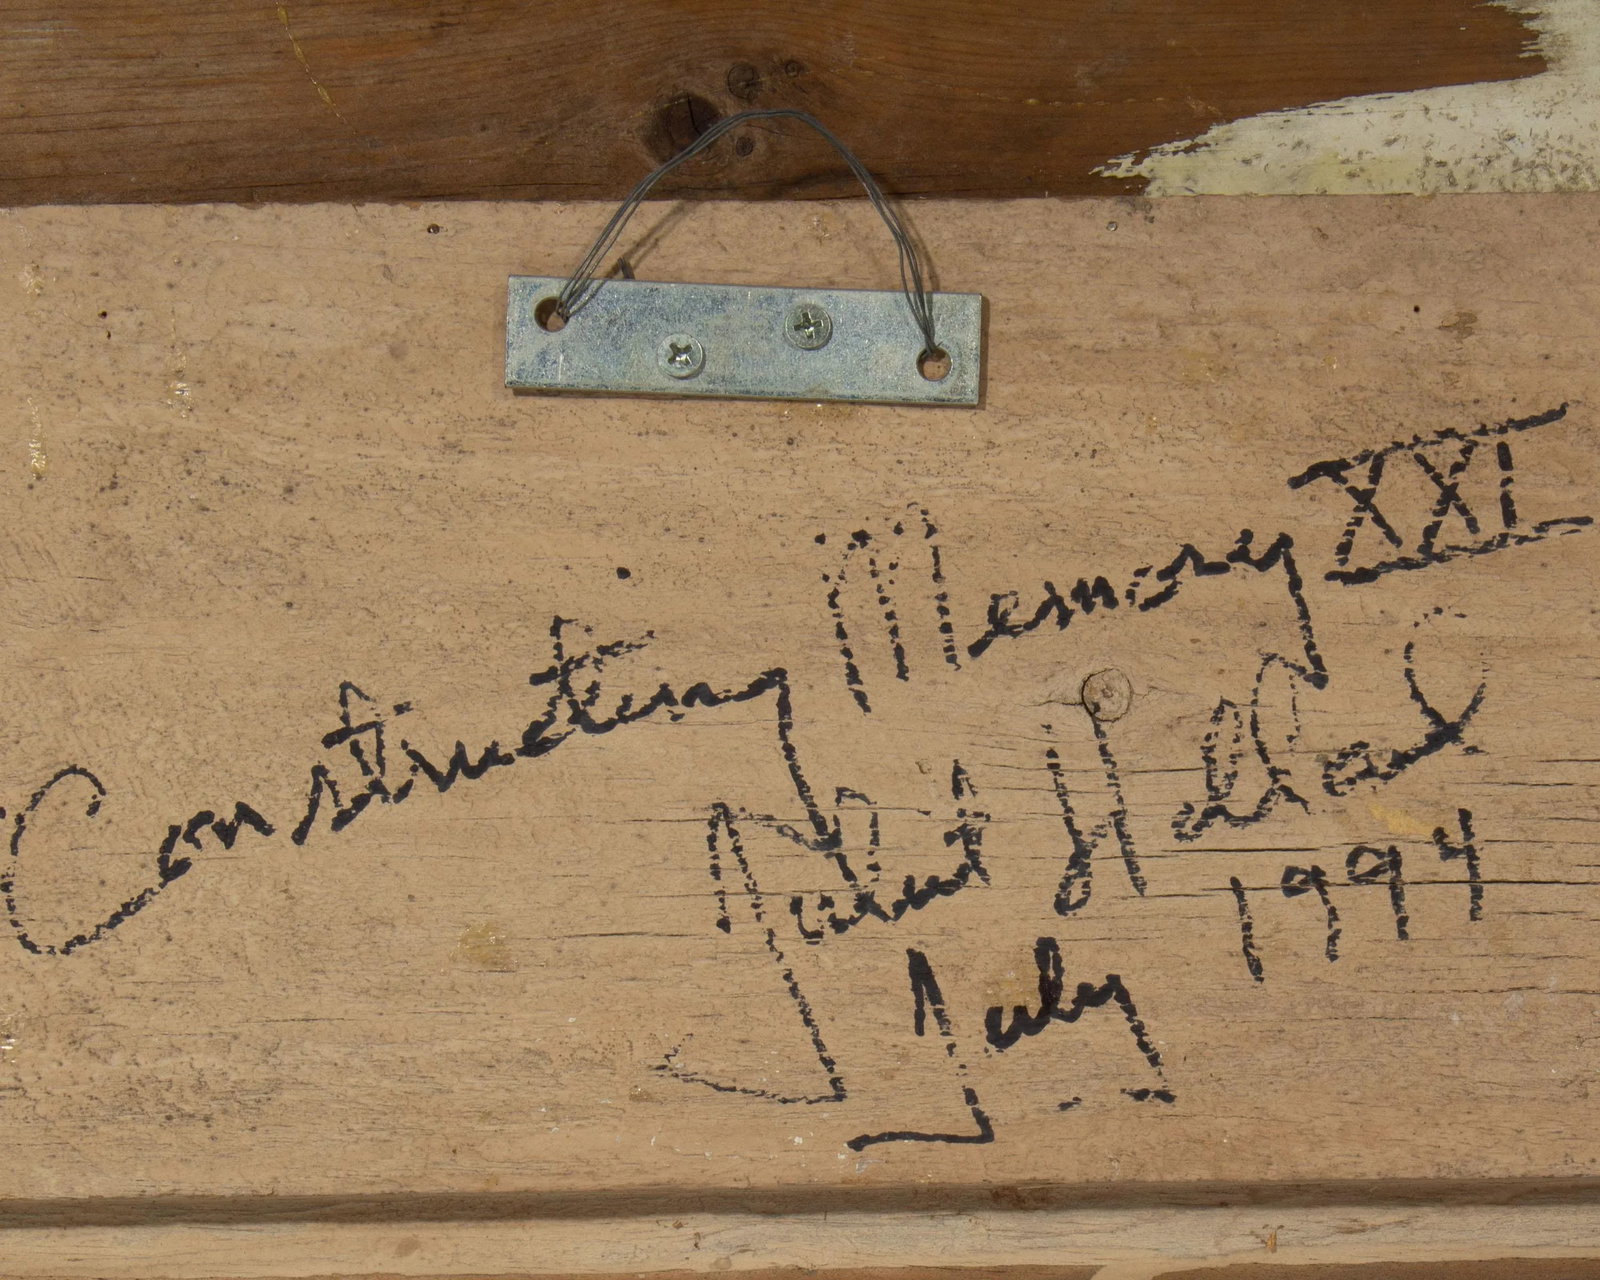 Constructing Memory XXI
July 1994